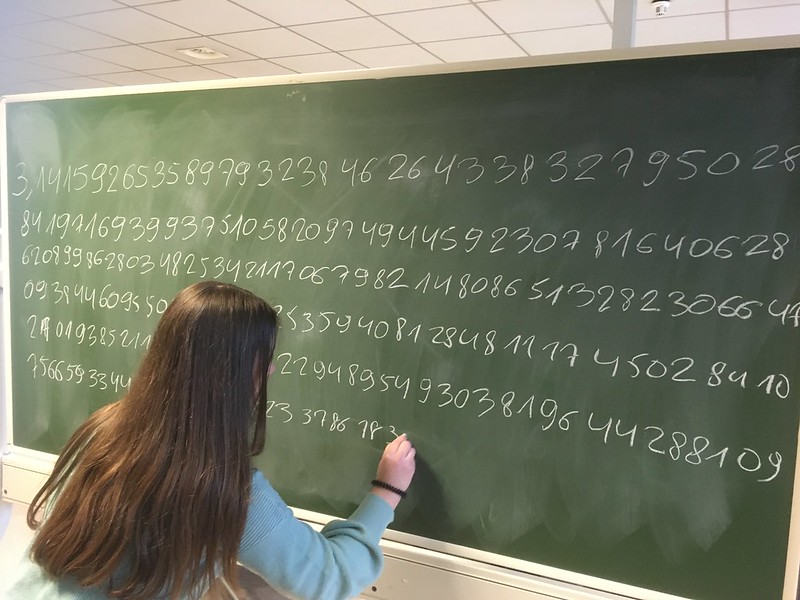 3,1415926535897932384626433832795028
8419716939937510582097494459230781640628
6208998628034825342117067982148086513282306647
093844609550 2535940812848111745028410
27019385211 229489549303819644288109
7566593344 233786783